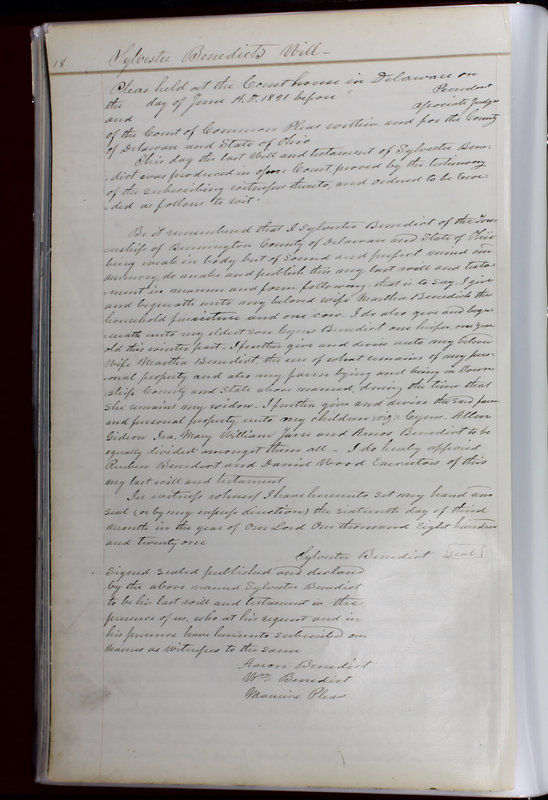 18 Sylvester Benedicts Will -
Pleas held at the Court house in Delaware on
the day of June A.D. 1821 before President
and Associate Judges
of the Court of Common Pleas within and for the County
of Delaware and State of Ohio
This day the last Will and testament of Sylvester Bene-
-dict was produced in open Court, proved by the testimony
of the subscribing witnesses thereto, and ordered to be recor-
-ded as follows to wit:
Be it remembered that I Sylvester Benedict of the Tow-
nship of Bennington County of Delaware and State of Ohio
being weak in body but of sound and perfect mind and
memory, do make and publish this my last will and testa-
-ment in manner and form following, that is to say I give
and bequeath unto my beloved wife Martha Benedict the
household furniture and one cow. I do also give and bequ-
-eath unto my eldest son Cyrus Benedict one heifer one year
old this winter past. I further give and devise unto my beloved
Wife Martha Benedict the use of what remains of my pers-
-onal property and also my farm lying and being in Town-
-ship County and State above named, during the time that
she remains my widow. I further give and devise the said farm
and personal property unto my children (viz) Cyrus Allen
Gideon Ira. Mary William Jane and Amos Benedict to be
equally divided amongst them all - I do hereby appoint
Reuben Benedict and Daniel Wood Executors of this
my last will and testament
In witness whereof I have hereunto set my hand and
seal (or by my express direction) the sixteenth day of third
month in the year of Our Lord One thousand Eight hundred
and twenty one
Sylvester Benedict [Seal]
Signed sealed published and declared
by the above named Sylvester Benedict
to be his last will and testament in the
presence of us, who at his request and in
his presence have hereunto subscribed our
names as witnesses to the same
Aaron Benedict
Wm. Benedict
Pleas